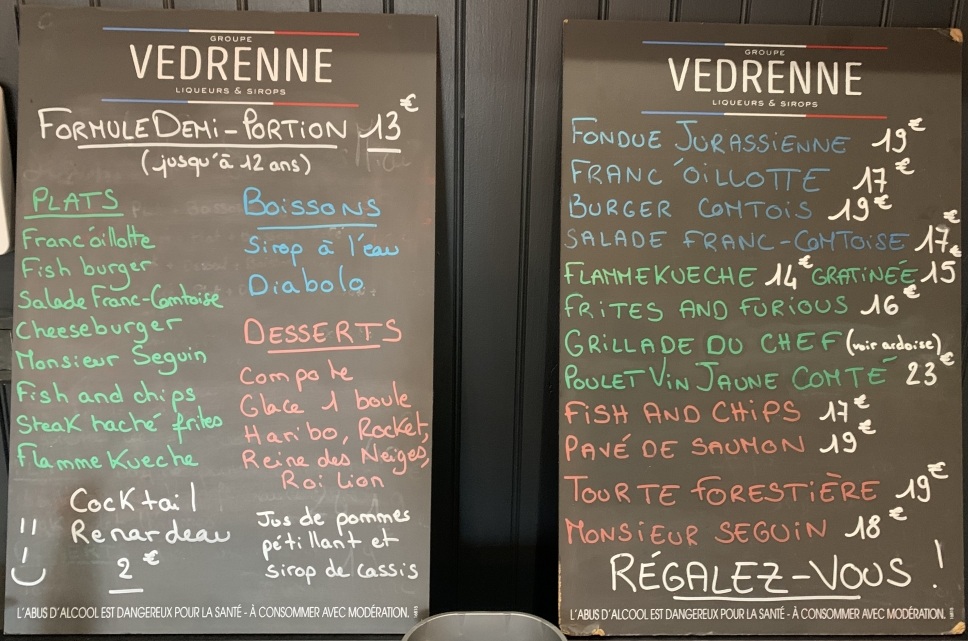 GROUPE
VEDRENNE
LIQUEURS & SIROPS
FORMULE DEMI-PORTION 13€
(jusqu'à 12 ans)
PLATS
Franc'oillotte
Fish burger
Salade Franc-Comtoise
Cheeseburger
Monsieur Seguin
Fish and chips
Steak haché frites
Flamme Kueche
BOISSONS
Sirop à l'eau
Diabolo
DESSERTS
Compote
Glace 1 boule
Haribo, Rocket,
Reine des Neiges,
Roi Lion
Cocktail
Renardeau
2€
Jus de pommes
pétillant et
sirop de cassis
L'ABUS D'ALCOOL EST DANGEREUX POUR LA SANTÉ - À CONSOMMER AVEC MODÉRATION.
GROUPE
VEDRENNE
LIQUEURS & SIROPS
FONDUE JURASSIENNE 19€
FRANC'OILLOTTE 17€
BURGER COMTOIS 19€
SALADE FRANC-COMTOISE 17€
FLAMMEKUECHE 14€ GRATINÉE 15€
FRITES AND FURIOUS 16€
GRILLADE DU CHEF (voir ardoise)
POULET VIN JAUNE COMTÉ 23€
FISH AND CHIPS 17€
PAVÉ DE SAUMON 19€
TOURTE FORESTIÈRE 19€
MONSIEUR SEGUIN 18€
RÉGALEZ-VOUS !
L'ABUS D'ALCOOL EST DANGEREUX POUR LA SANTÉ - À CONSOMMER AVEC MODÉRATION.